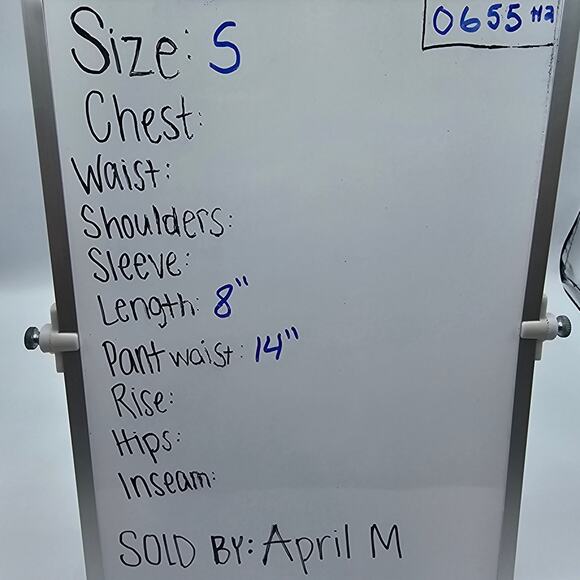 0655 H2
Size: S
Chest:
Waist:
Shoulders:
Sleeve:
Length: 8"
Pant waist: 14"
Rise:
Hips:
Inseam:
SOLD BY: April M